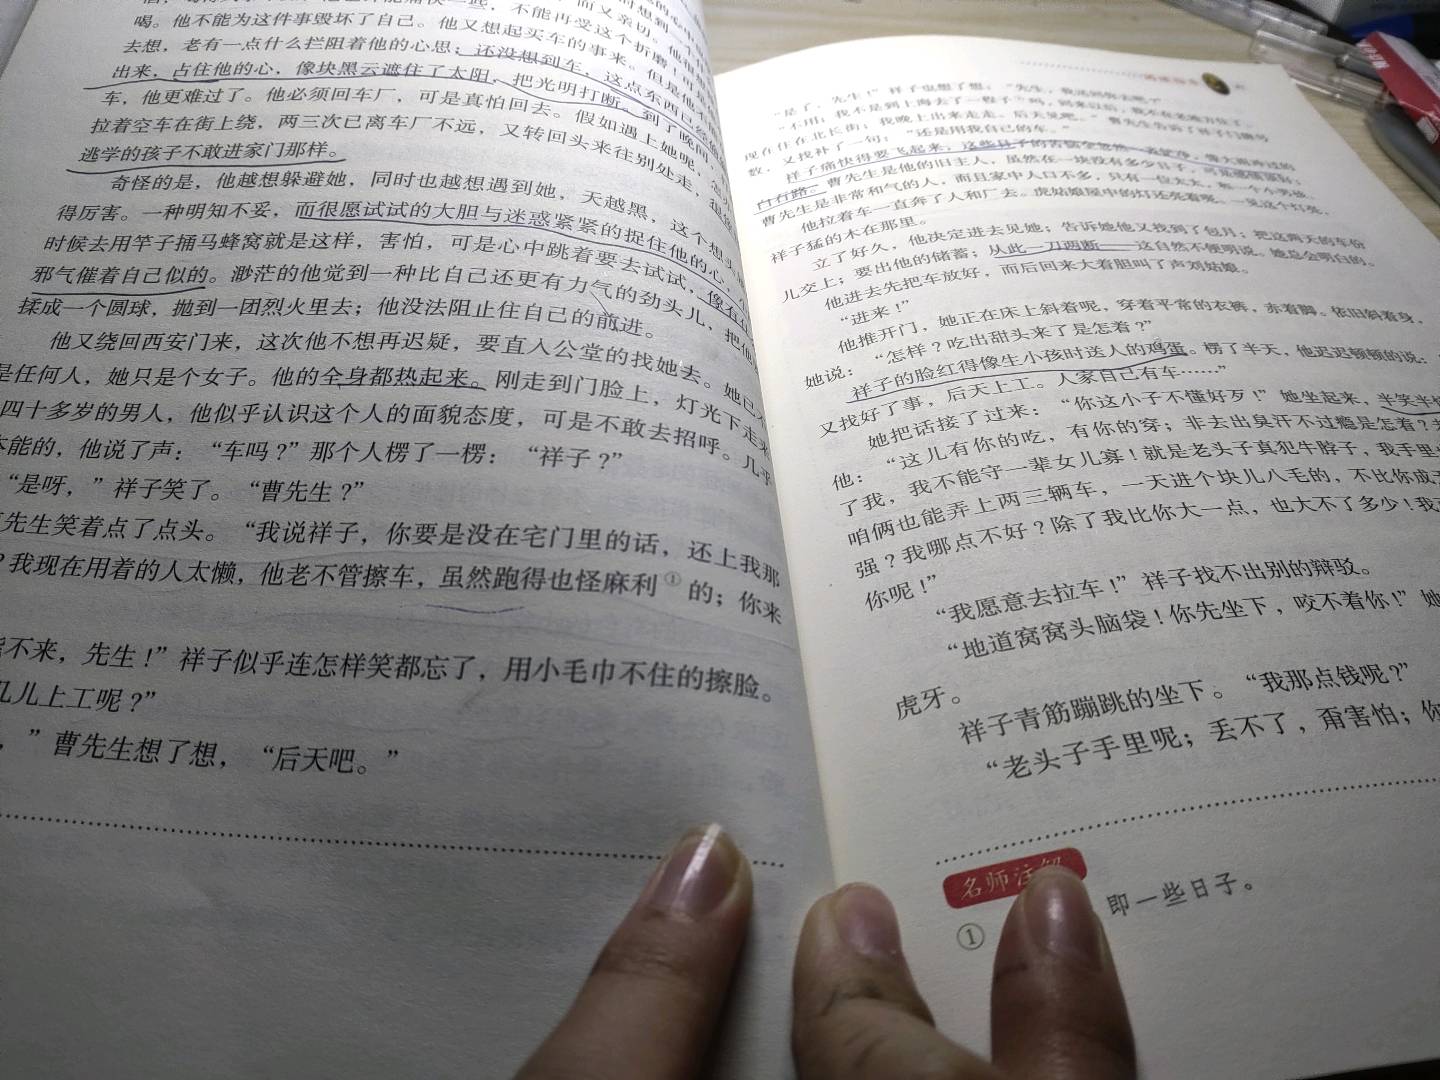 喝。他不能为这件事毁坏了自己。他又想起买车的事来。但是他不能
去想，老有一点什么拦阻着他的心思；还没想到车，这点东西已经偷
出来，占住他的心，像块黑云遮住了太阳，把光明打断。到了晚间，
车，他更难过了。他必须回车厂，可是真怕回去。假如遇上她呢，怎
拉着空车在街上绕，两三次已离车厂不远，又转回头来往别处走，很像
逃学的孩子不敢进家门那样。
奇怪的是，他越想躲避她，同时也越想遇到她，天越黑，这个想头
得厉害。一种明知不妥，而很愿试试的大胆与迷惑紧紧的捉住他的心，
时候去用竿子捅马蜂窝就是这样，害怕，可是心中跳着要去试试，像有什
邪气催着自己似的。渺茫的他觉到一种比自己还更有力气的劲头儿，把他
揉成一个圆球，抛到一团烈火里去；他没法阻止住自己的前进。
他又绕回西安门来，这次他不想再迟疑，要直入公堂的找她去。她已不
是任何人，她只是个女子。他的全身都热起来。刚走到门脸上，灯光下走来
四十多岁的男人，他似乎认识这个人的面貌态度，可是不敢去招呼。几乎
本能的，他说了声：“车吗？”那个人楞了一楞：“祥子？”
“是呀，”祥子笑了。“曹先生？”
先生笑着点了点头。“我说祥子，你要是没在宅门里的话，还上我那
？我现在用着的人太懒，他老不管擦车，虽然跑得也怪麻利①的；你来
不来，先生！”祥子似乎连怎样笑都忘了，用小毛巾不住的擦脸。
几儿上工呢？”
，”曹先生想了想，“后天吧。”
“是了，先生！”祥子也想了想：“先生，我送到你去吧？”
“不用；我不是到上海去了一程子①吗，回来以后，我不在老地方住了。
现在住在北长街；我晚上出来走走。后天见吧。”曹先生告诉了祥子门牌号
数，又找补了一句：“还是用我自己的车。”
祥子痛快得要飞起来，这些日子的苦恼全忽然一齐铲净，像大雨冲过的
白石路。曹先生是他的旧主人，虽然在一块没有多少日子，可是感情顶好；
曹先生是非常和气的人，而且家中人口不多，只有一位太太，和一个小男孩。
他拉着车一直奔了人和厂去。虎姑娘屋中的灯还亮着呢。一见这个灯亮，
祥子猛的木在那里。
立了好久，他决定进去见她；告诉她他又找到了包月；把这两天的车份
儿交上；要出他的储蓄；从此一刀两断——这自然不便明说，她总会明白的。
他进去先把车放好，而后回来大着胆叫了声刘姑娘。
“进来！”
他推开门，她正在床上斜着呢，穿着平常的衣裤，赤着脚。依旧斜着身，
她说：“怎样？吃出甜头来了是怎着？”
祥子的脸红得像生小孩时送人的鸡蛋。楞了半天，他迟迟顿顿的说：“
又找好了事，后天上工。人家自己有车……”
她把话接了过来：“你这小子不懂好歹！”她坐起来，半笑半恼
他：“这儿有你的吃，有你的穿；非去出臭汗不过瘾是怎着？老
了我，我不能守一辈女儿寡！就是老头子真犯牛脖子，我手里
咱俩也能弄上两三辆车，一天进个块儿八毛的，不比你成天
强？我哪点不好？除了我比你大一点，也大不了多少！我
你呢！”
“我愿意去拉车！”祥子找不出别的辩驳。
“地道窝窝头脑袋！你先坐下，咬不着你！”她
虎牙。
祥子青筋蹦跳的坐下。“我那点钱呢？”
“老头子手里呢；丢不了，甭害怕；你
名师注解
① 即一些日子。